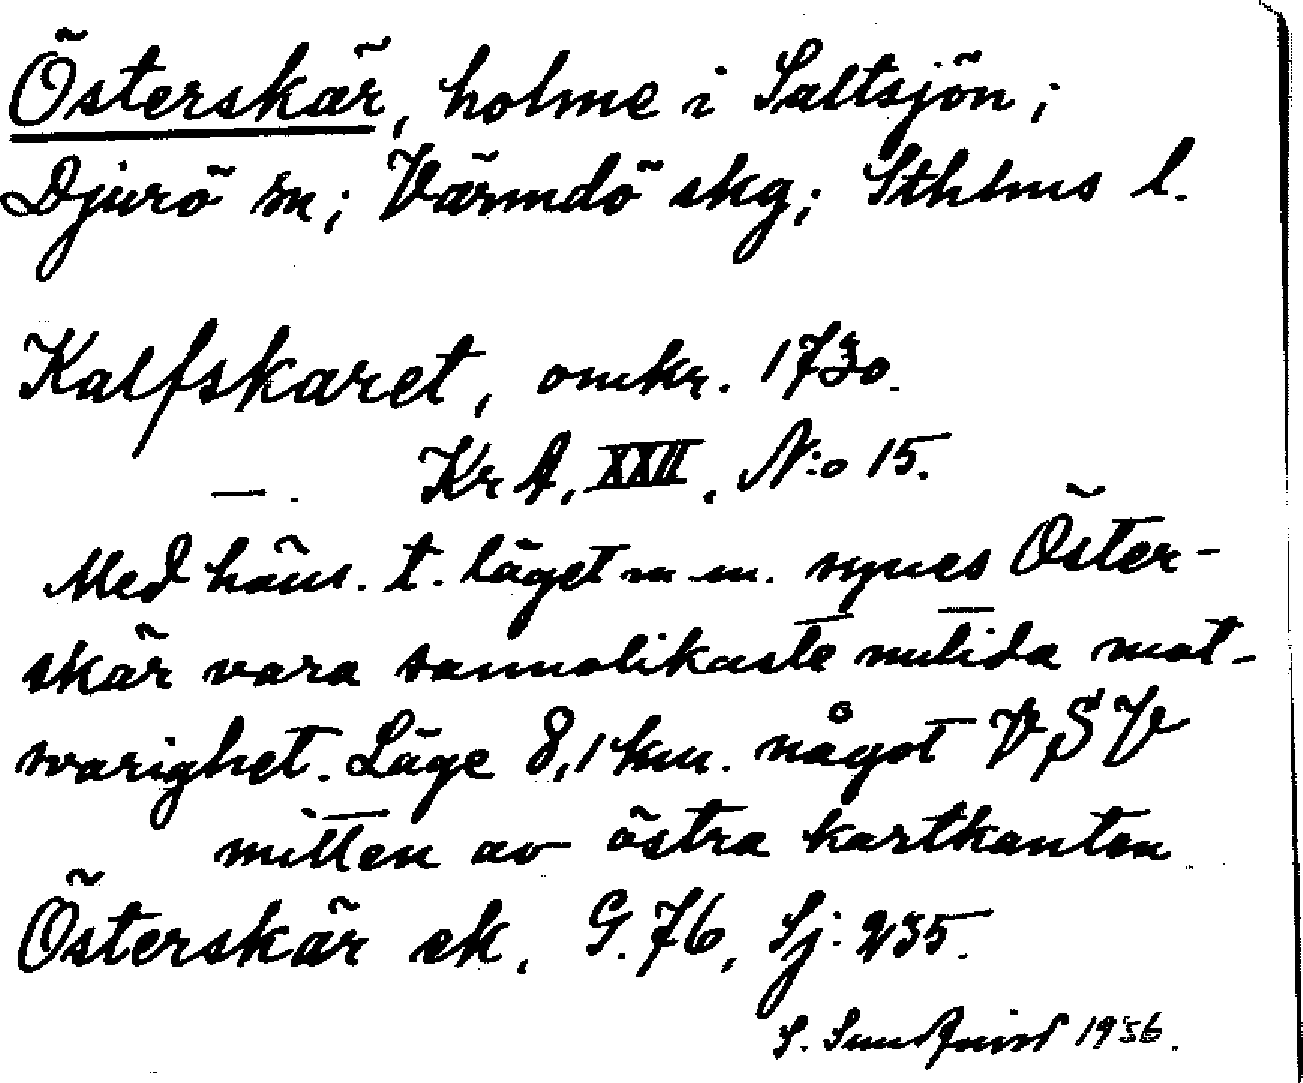 Österskär, holme i Saltsjön;
Djurö sn; Värmdö skg; Sthlms l.
Kalfskaret, omkr. 1730.
—. Kr A, XXII, N:o 15.
Med häns. t. läget m m. synes Öster-
skär vara sannolikaste nutida mot-
svarighet. Läge 8,1 km. något VSV
mitten av östra kartkanten
Österskär ek. G. 76, Sj: 235.
S. Sundqvist 1936.